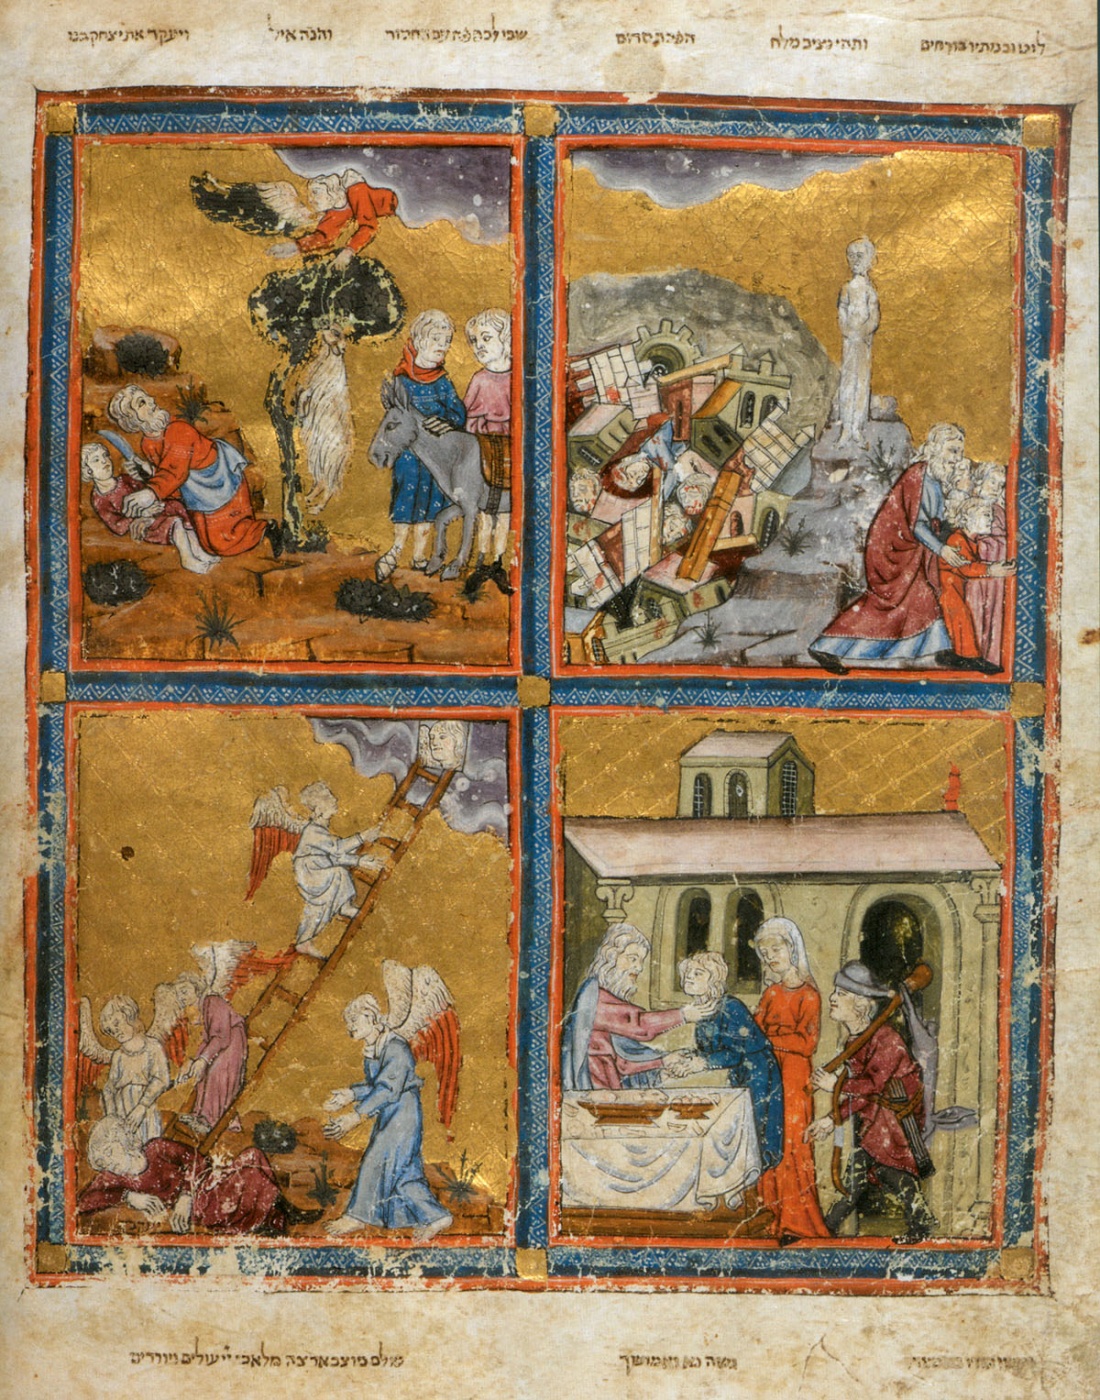 לוט ובנותיו בורחים ותהי נציב מלח הפיכת סדום שבו לכם פה עם החמור והנה איל ויעקד את יצחק בנו
גשה נא ואמושך סולם מוצב ארצה מלאכי יי עולים ויורדים